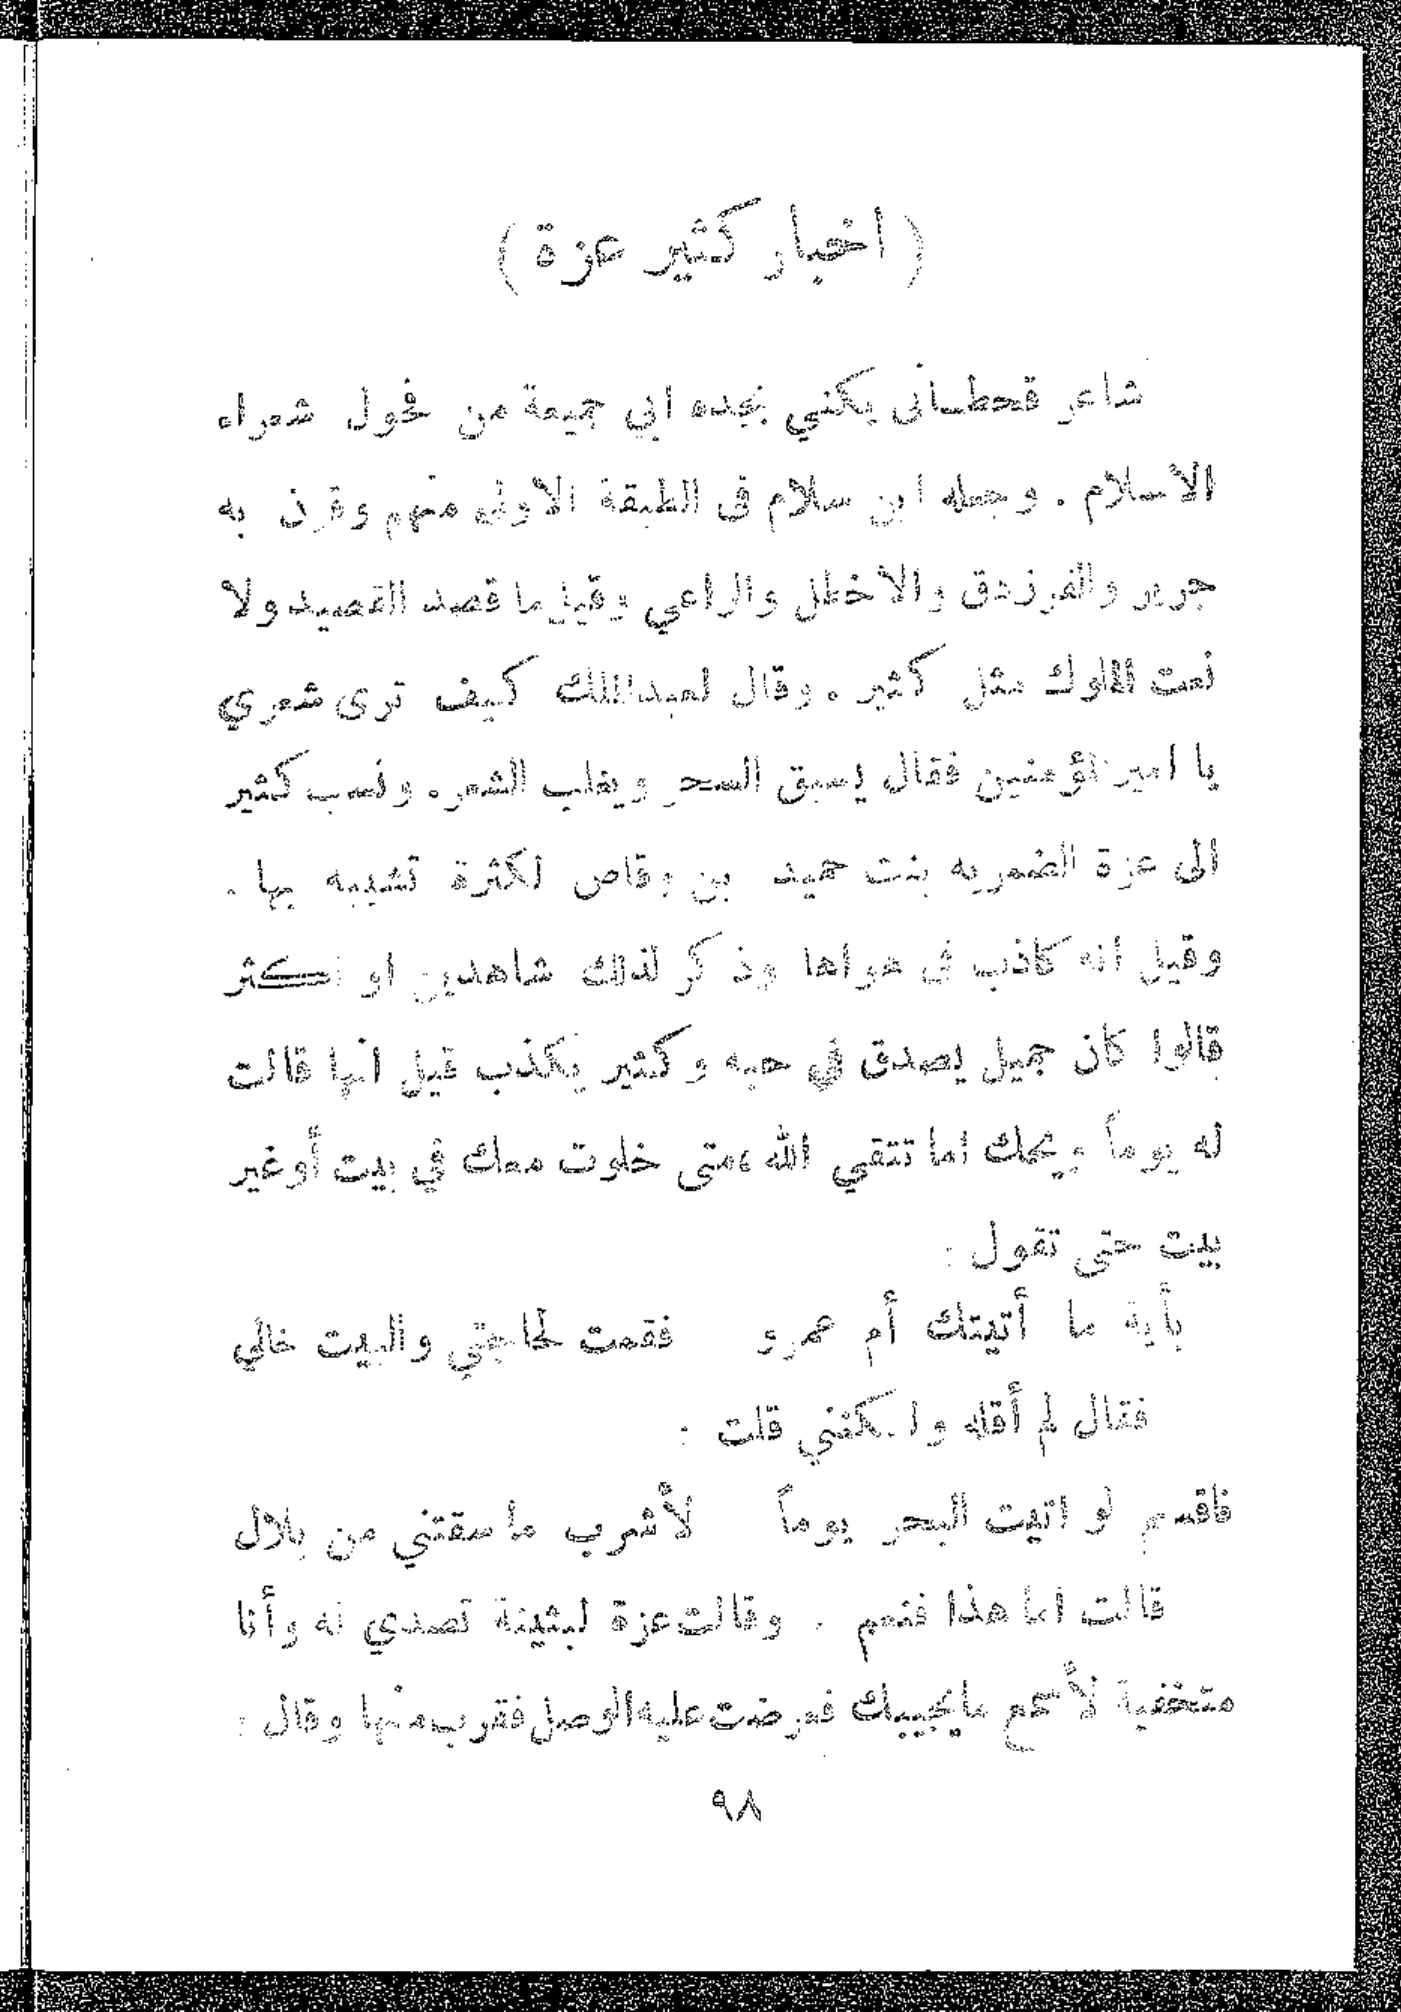 ( اخبار كثير عزة )
شاعر قحطانى يكني بجده ابي جميعة من فحول شعراء
الاسلام . وجعله ابن سلام فى الطبقة الاولى منهم وقرن به
جرير والفرزدق والاخطل والراعي وقيل ما قصد القصيد ولا
نعت الملوك مثل كثير . وقال لعبد الملك كيف ترى شعري
يا امير المؤمنين فقال يسبق السحر ويغلب الشعر . ونسب كثير
الى عزة الضمريه بنت حميد بن وقاص لكثرة تشبيبه بها .
وقيل انه كاذب فى هواها وذكر لذلك شاهدين او اكثر
قالوا كان جميل يصدق في حبه وكثير يكذب قيل انها قالت
له يوماً ويحك اما تتقي الله ،متى خلوت معك في بيت أوغير
بيت حتى تقول :
بأية ما أتيتك أم عمرو فقمت لحاجتي والبيت خالي
فقال لم أقله ولكنني قلت :
فاقسم لو اتيت البحر يوماً لأشرب ما سقتني من بلال
قالت اما هذا فنعم . وقالت عزة لبثينة تصدي له وأنا
متخفية لأسمع مايجيبك فعرضت عليه الوصل فقرب منها وقال :
٩٨